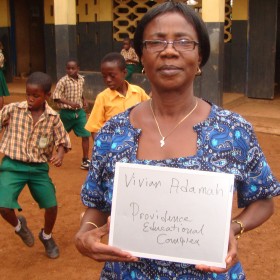 Vivian Adamah
Providence
Educational
Complex